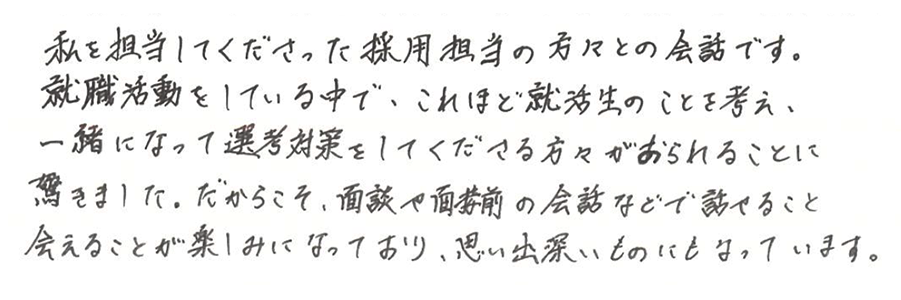 私を担当してくださった採用担当の方々との会話です。
就職活動をしている中で、これほど就活生のことを考え、
一緒になって選考対策をしてくださる方々がおられることに
驚きました。だからこそ、面談や面接前の会話などで話せること
会えることが楽しみになっており、思い出深いものにもなっています。